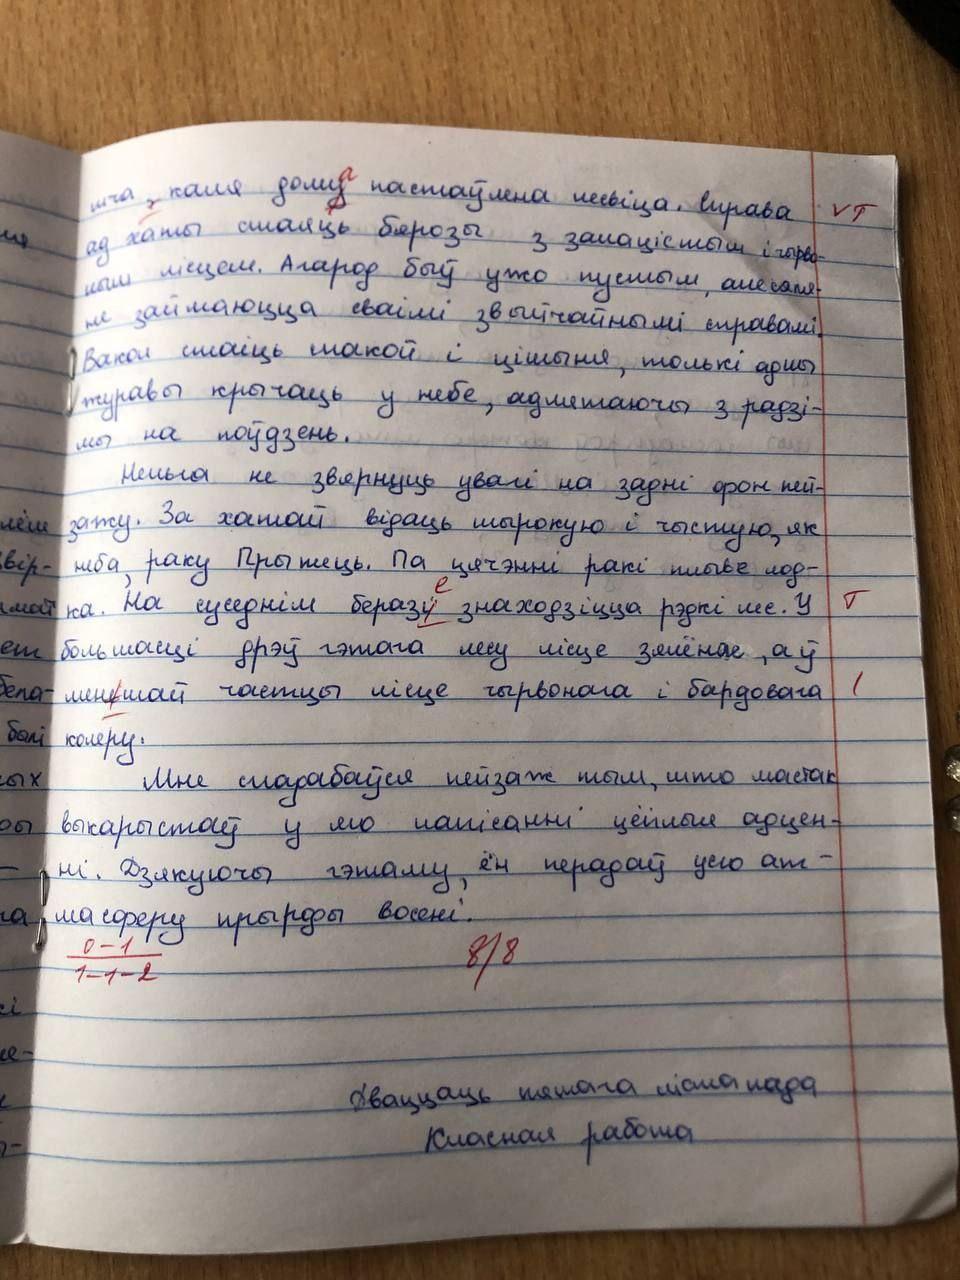 шча, каля дому настаўлена лесвіца. Справа
ад хаты стаяць бярозы з залацістым і чырво-
ным лісцем. Агарод быў ужо пустым, але сяля-
не займаюцца сваімі звычайнымі справамі.
Вакол стаіць такой і цішыня, толькі адны
журавы крычаць у небе, адлятаючы з радзі-
мы на поўдзень.
Нельга не звярнуць увагі на задні фон пей-
зажу. За хатай відаць шырокую і чыстую, як
неба, раку Прыпець. Па цячэнні ракі плыве лод-
ка. На суседнім беразў знаходзіцца рэдкі лес. У
большасці дрэў гэтага лесу лісце зялёнае, а ў
меньшай частцы лісце чырвонага і бардовага
колеру.
Мне спадабаўся пейзаж тым, што мастак
выкарыстаў у яго напісанні цёплыя адцен-
ні. Дзякуючы гэтаму, ён перадаў усю ат-
масферу прыроды восені.
0-1
1-1-2
8/8
Дваццаць пятага лістапада
Класная работа